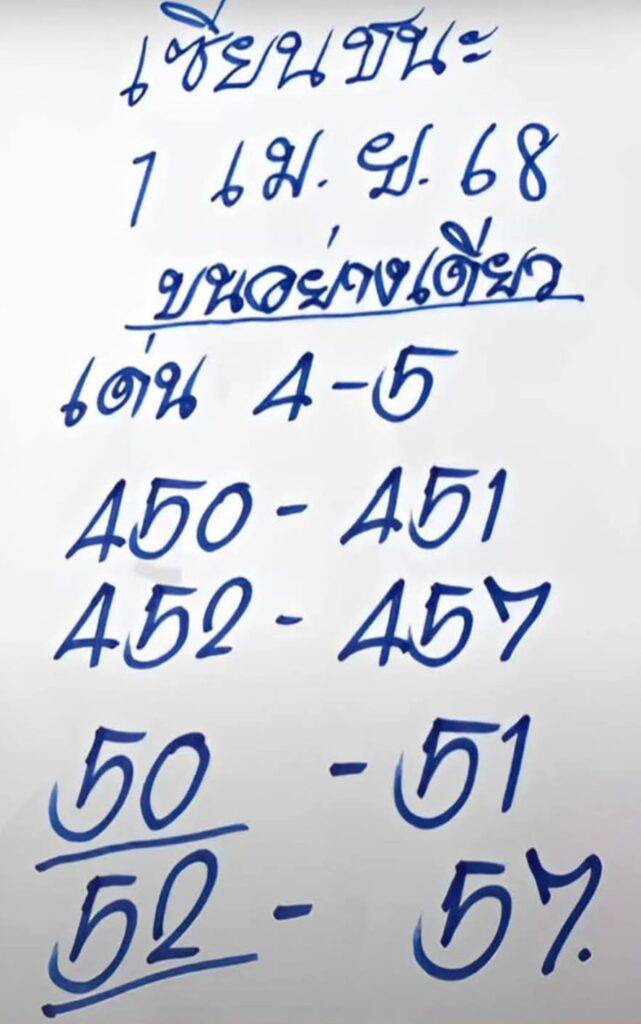 เซียนชนะ
1 เม.ย. 68
บนอย่างเดียว
เด่น 4-5
450 - 451
452 - 457
50 - 51
52 - 57.